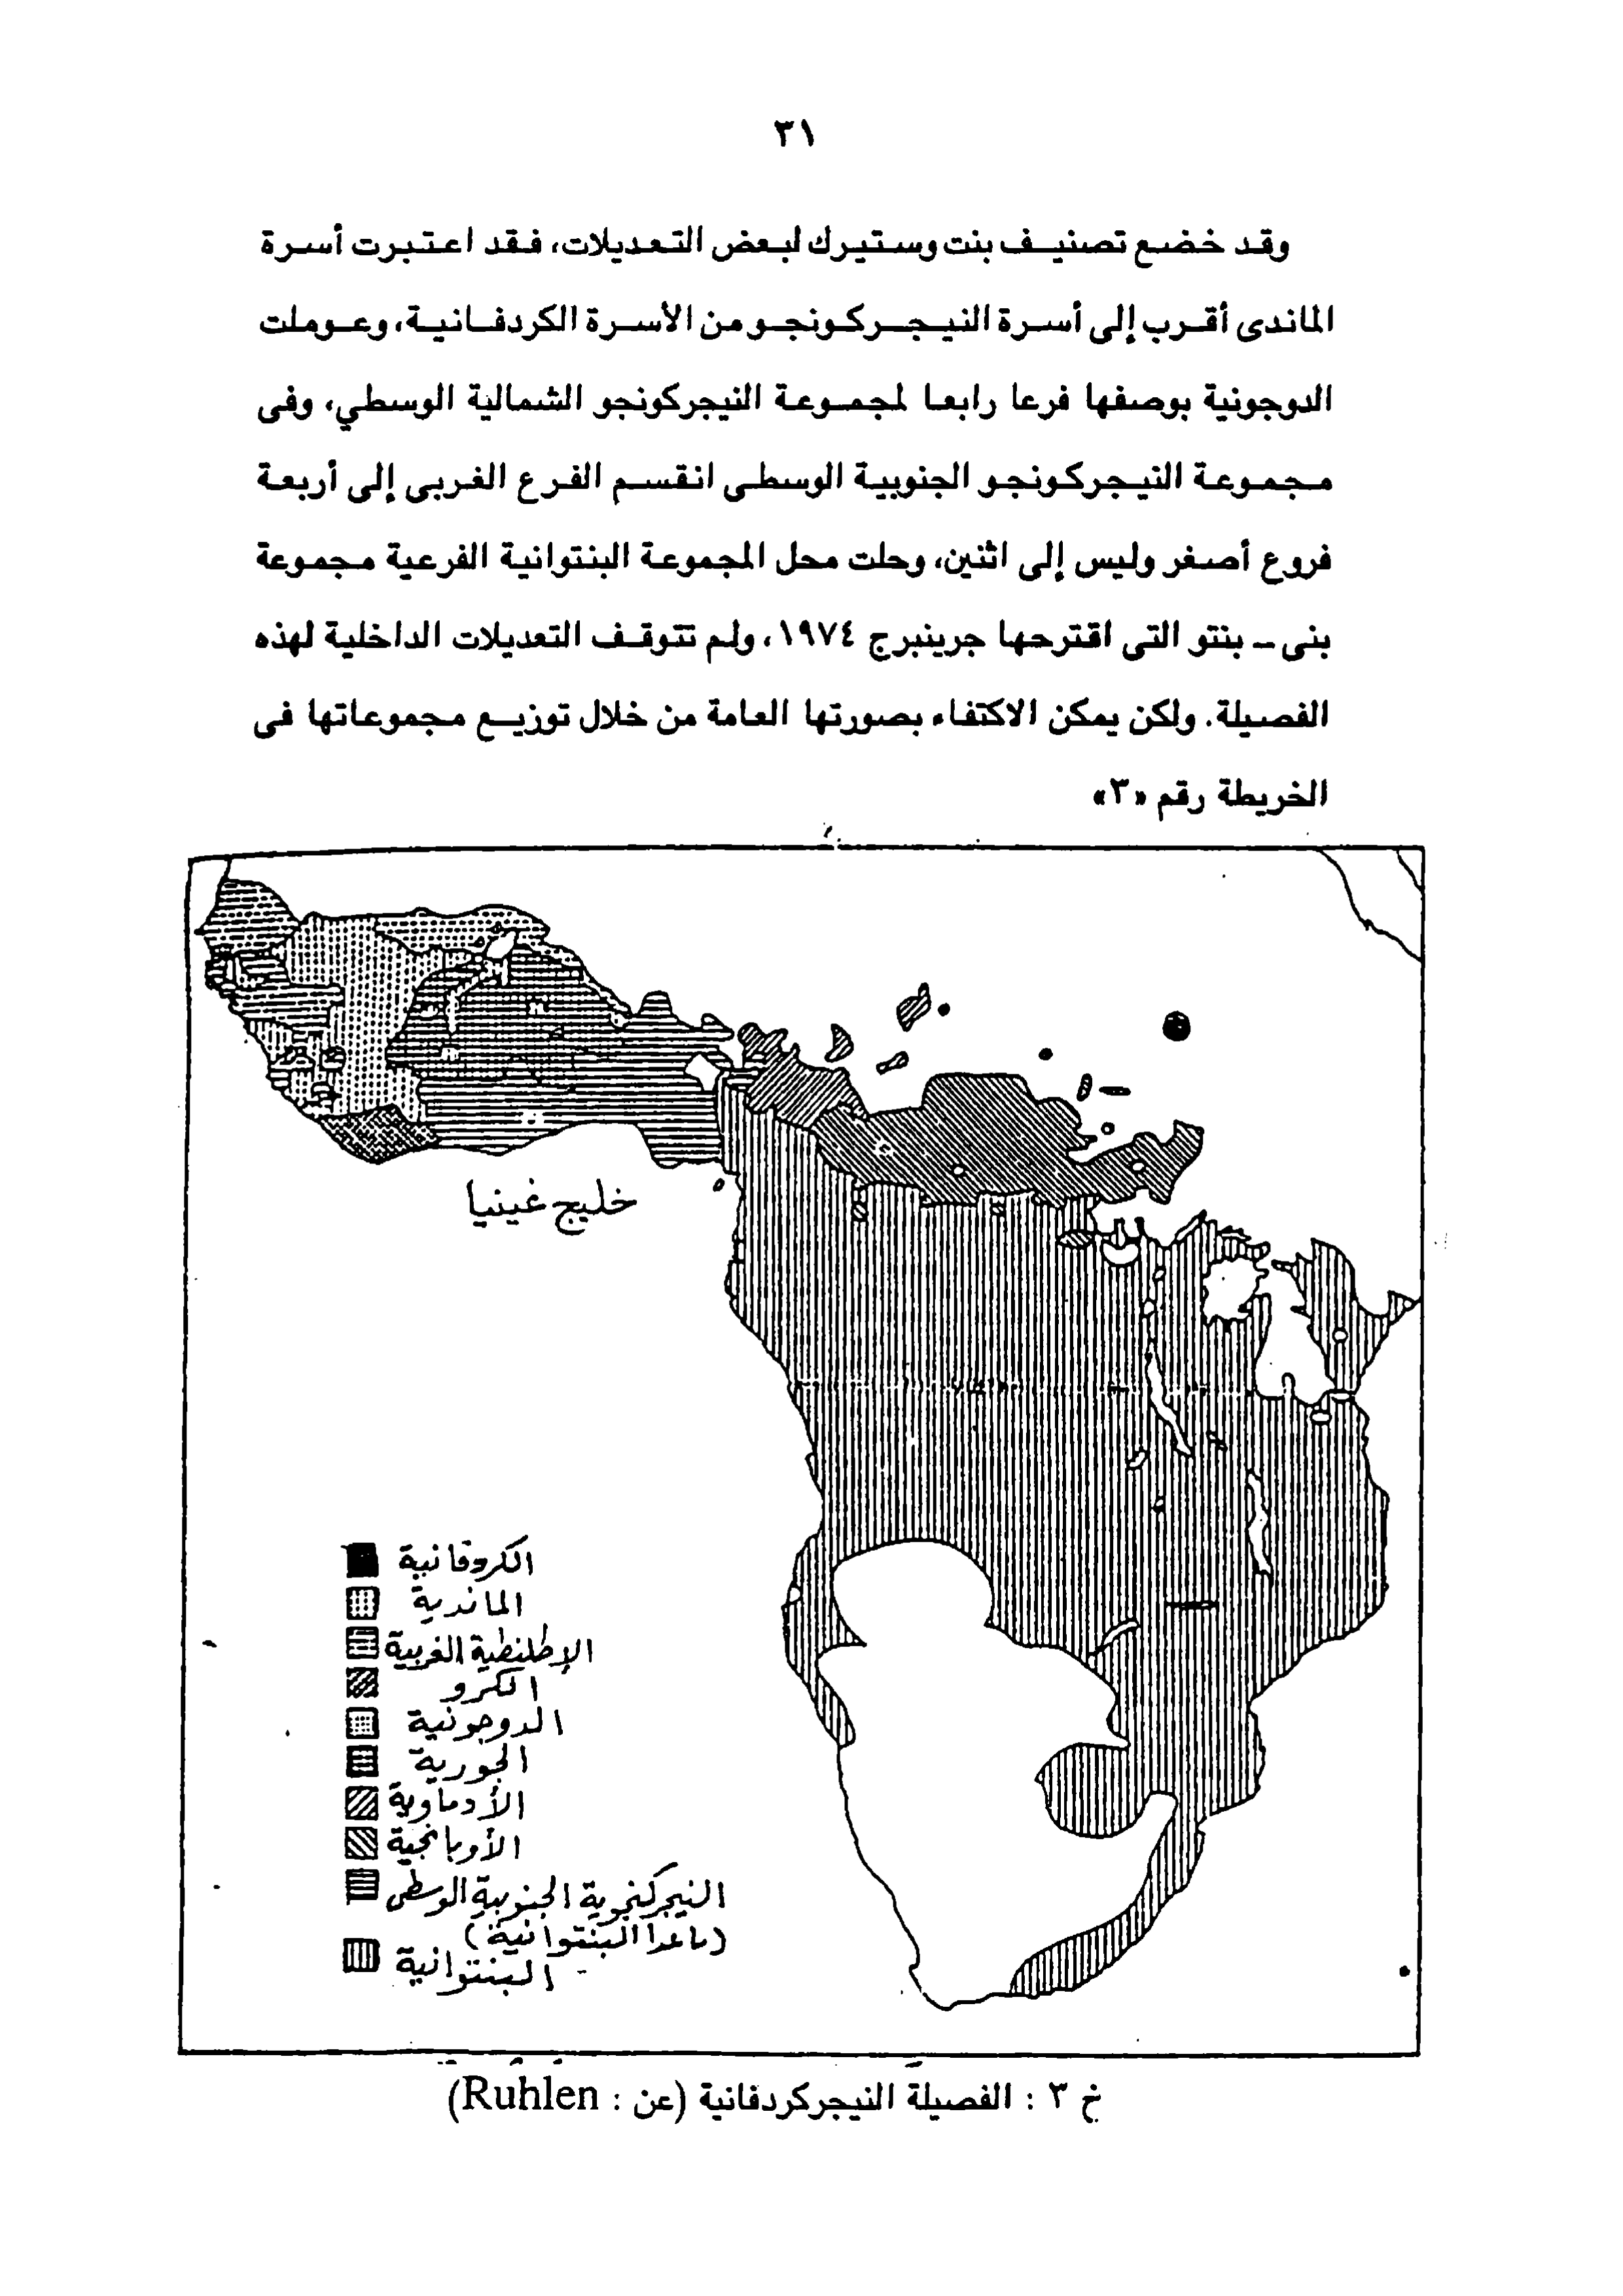 ٣١
وقد خضع تصنيف بنت وستيرك لبعض التعديلات، فقد اعتبرت أسرة
الماندى أقرب إلى أسرة النيجركونجو من الأسرة الكردفانية، وعوملت
الدوجونية بوصفها فرعا رابعا لمجموعة النيجركونجو الشمالية الوسطي، وفى
مجموعة النيجركونجو الجنوبية الوسطى انقسم الفرع الغربى إلى أربعة
فروع أصغر وليس إلى اثنين، وحلت محل المجموعة البنتوانية الفرعية مجموعة
بنى – بنتو التى اقترحها جرينبرج ١٩٧٤، ولم تتوقف التعديلات الداخلية لهذه
الفصيلة. ولكن يمكن الاكتفاء بصورتها العامة من خلال توزيع مجموعاتها فى
الخريطة رقم «٣»
خليج غينيا
الكردفانية
الماندية
الإطلنطية الغربية
الكرو
الدوجونية
الجورية
الأدماوية
الأوبانجية
النيجركنجوية الجنوبية الوسطى
(ماعدا البنتوانية)
البنتوانية
خ ٣ : الفصيلة النيجركردفانية (عن : Ruhlen)